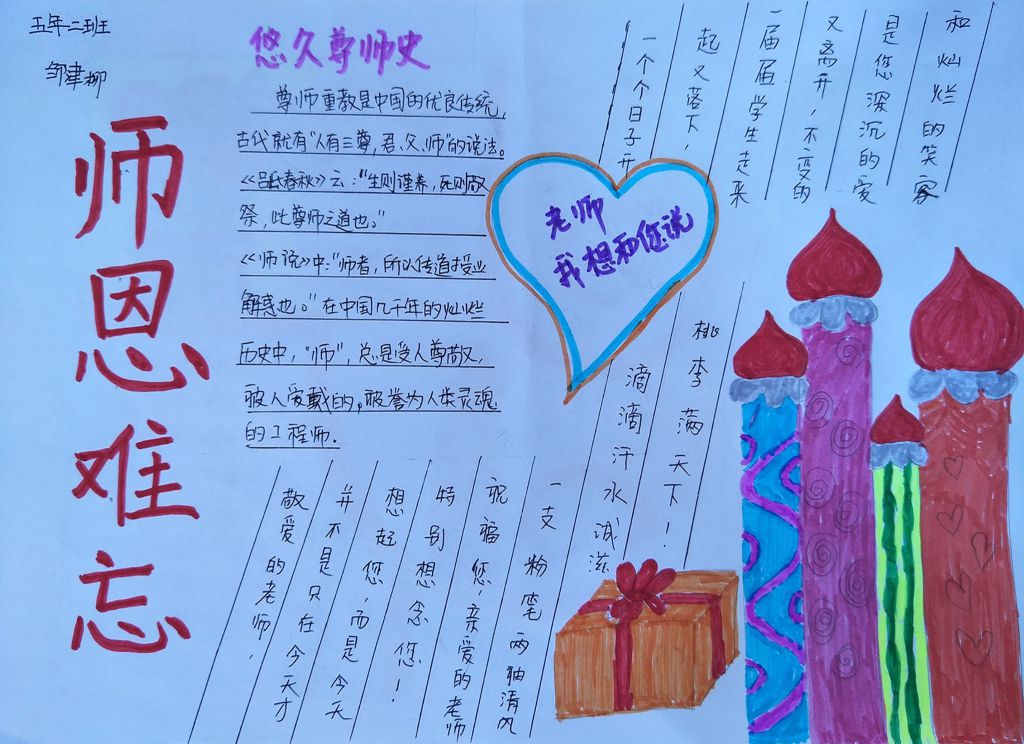 五年二班
邹津柳
师恩难忘
悠久尊师史
尊师重教是中国的优良传统,
古代就有"人有三尊,君、父、师"的说法。
《吕氏春秋》云:"生则谨养,死则敬
祭,此尊师之道也。"
《师说》中:"师者,所以传道授业
解惑也。"在中国几千年的灿烂
历史中,"师",总是受人尊敬,
被人爱戴的,被誉为人类灵魂
的工程师.
老师
我想和您说
敬爱的老师,
并不是只在今天才
想起您,而是今天
特别想念您!
祝福您,亲爱的老师
一支粉笔两袖清风
滴滴汗水诚滋
桃李满天下!
一个个日子升
起又落下,
一届届学生走来
又离开,不变的
是您深沉的爱
和灿烂的笑容